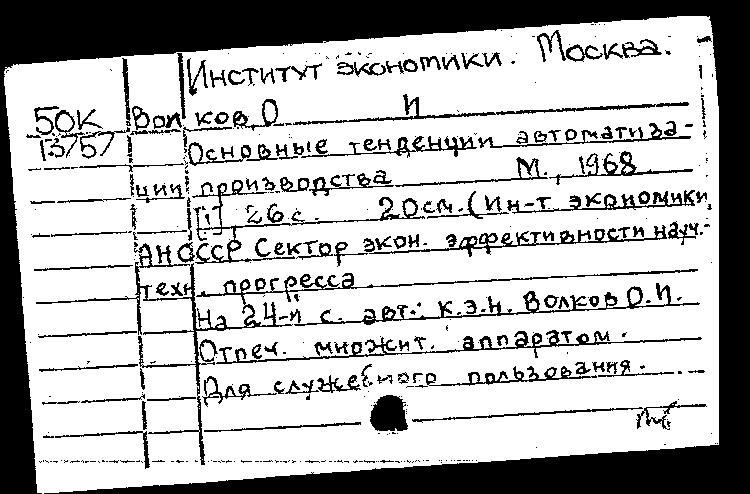 Институт экономики. Москва.
50К Волков, О И
13/57
Основные тенденции автоматиза-
ции производства М., 1968.
[1], 26 с. 20см. (Ин-т экономики
АН СССР Сектор экон. эффективности науч.-
техн. прогресса.
На 24-й с. авт.: к.э.н. Волков О.И.
Отпеч. множит. аппаратом.
Для служебного пользования.